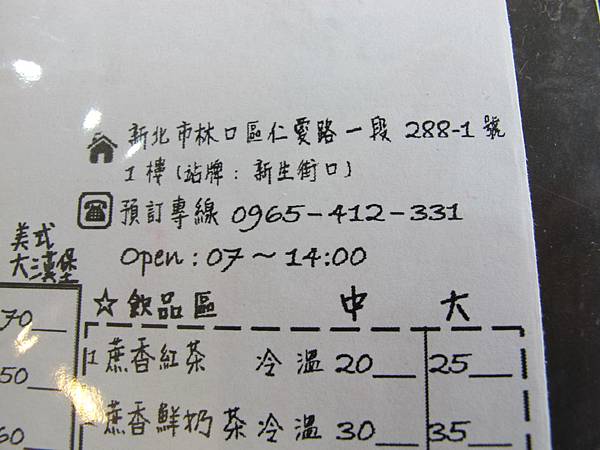 新北市林口區仁愛路一段 288-1 號
1 樓(站牌：新生街口)
預訂專線 0965-412-331
Open：07～14:00
美式
大漢堡
70
50
60
☆飲品區 中 大
1 蔗香紅茶 冷 溫 20__ 25__
蔗香鮮奶茶 冷 溫 30__ 35__